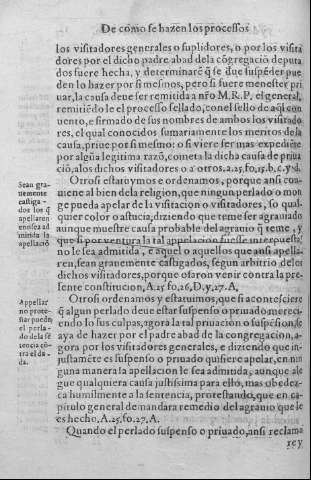 De como se hazen los processos
los visitadores generales o suplidores, o por los visita
dores por el dicho padre abad dela cõgregaciõ deputa
dos fuere hecha, y determinarē q̃ se deue suspēder pue
den lo hazer por si mesmos, pero si fuere menester pri
uar, la causa deue ser remitida a nr̃o M.R.P. el general,
remitiēdo le el processo sellado, con el sello de aq̃l con
uento, e firmado de sus nombres de ambos los visitado
res, el qual conocidos sumariamente los meritos dela
causa, priue por si mesmo: o si viere ser mas expediēte
por algũa legitima razõ, cometa la dicha causa de priua
ciõ, alos dichos visitadores o a otros. 2.25. fo, 15. b, c. y. d.
Otrosi estatuymos e ordenamos, porque ansi con-
uiene al bien dela religion, que ningun perlado o mon
ge pueda apelar dela visitacion o visitadores, so qual-
quier color o astucia, diziendo que teme ser agrauiado
aunque muestre causa probable del agrauio q̃ teme, y
que si por ventura la tal appelaciõn fuesse interpuesta
no le sea admitida, e aquel o aquellos que ansi apella-
ren, sean grauemente castigados, segun arbitrio, delos
dichos visitadores, porque osaron venir contra la pre-
sente constitucion, A. 25 fo, 26, D. y, 27. A,
Sean gra-
uemente
castiga-
dos los q̃
apellaren
eno sea ad
mitida la
apellaciõ
Otrosi ordenamos y estatuimos, que si aconteſciere
q̃ algun perlado deue estar suspenso o priuado mereci-
endo lo sus culpas, agora la tal priuacion o suspēsion, le
aya de hazer por el padre abad de la congregacion, a-
gora por los visitadores generales, e diziendo que in-
justamēte es suspenso o priuado quisiere apelar, en nin
guna manera la apellacion le sea admitida, aunque ale
gue qualquiera causa justissima para ello, mas obedez-
ca humilmente a la sentencia, protestando, que en ca-
pitulo general demandara remedio del agrauio que le
es hecho. A. 25. fo. 27. A.
Appellar
no prote-
star pueda
el perla-
do dela sē
tencia cõ-
tra el da-
da.
Quando el perlado suspenso o priuado, ansi reclama
rey